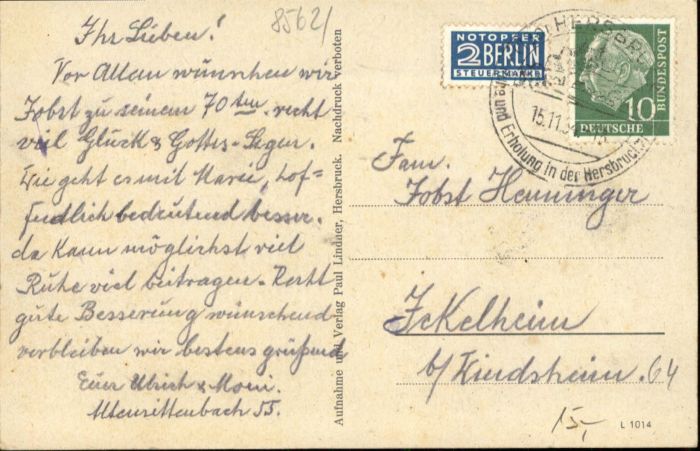 8562/
Ihr Lieben!
Vor Allem wünschen wir
Jobst zu seinem 70ten recht
viel Glück & Gottes-Segen.
Wie geht es mit Marie, hof-
fendlich bedeutend besser.
da kann möglichst viel
Ruhe viel beitragen. Recht
gute Besserung wünschend
verbleiben wir bestens grüßend
Euer Ulrich &
Altensittenbach 55.
Aufnahme und Verlag Paul Lindner, Hersbruck. Nachdruck verboten
NOTOPFER
2 BERLIN
STEUERMARKE
HERSBRUCK
15.11.54
und Erholung in der Hersbrucker
10
DEUTSCHE
BUNDESPOST
Fam.
Jobst Henninger
Ickelheim
b/Windsheim. 64
15,-
L 1014